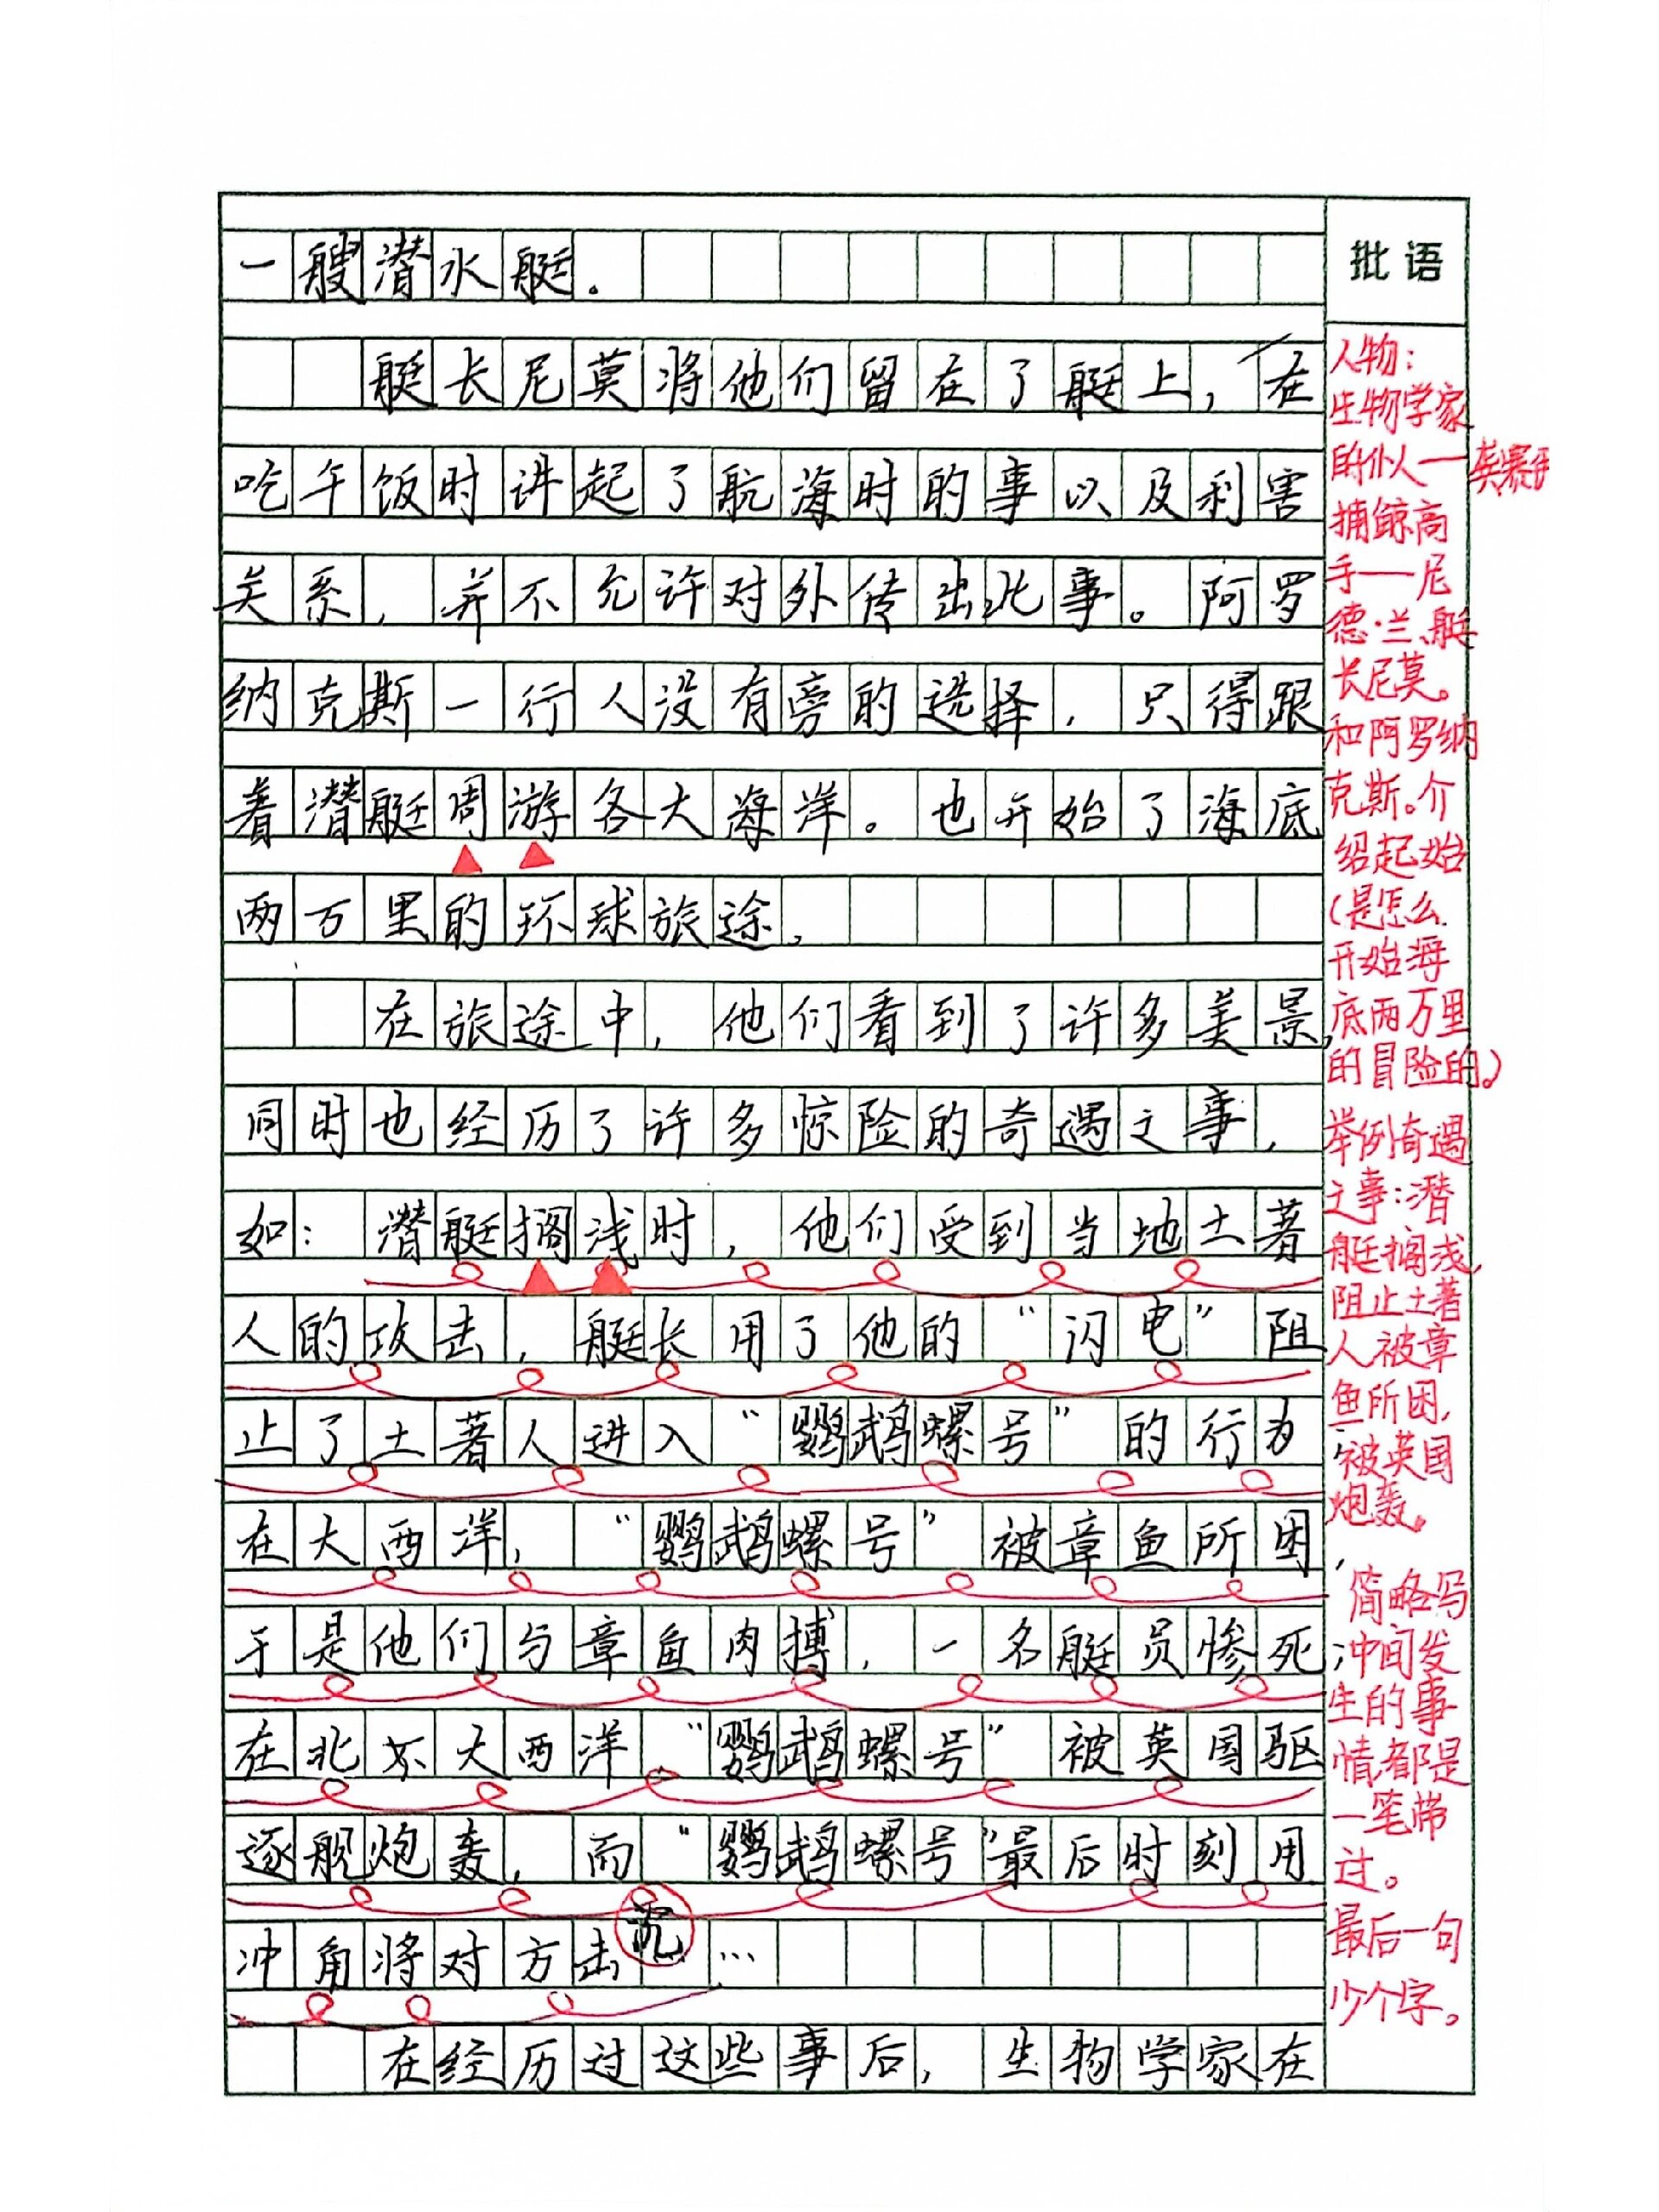 一艘潜水艇。
艇长尼莫将他们留在了艇上，在
吃午饭时讲起了航海时的事以及利害
关系，并不允许对外传出此事。阿罗
纳克斯一行人没有旁的选择，只得跟
着潜艇周游各大海洋。也开始了海底
两万里的环球旅途，
在旅途中，他们看到了许多美景，
同时也经历了许多惊险的奇遇之事，
如：潜艇搁浅时，他们受到当地土著
人的攻击，艇长用了他的“闪电”阻
止了土著人进入“鹦鹉螺号”的行为；
在大西洋，“鹦鹉螺号”被章鱼所困，
于是他们与章鱼肉搏，一名艇员惨死；
在北大西洋，“鹦鹉螺号”被英国驱
逐舰炮轰，而“鹦鹉螺号”最后时刻用
冲角将对方击沉…
在经历过这些事后，生物学家在
批语
人物：
生物学家
的仆人一龚赛伊
捕鲸高
手——尼
德·兰、艇
长尼莫。
和阿罗纳
克斯。介
绍起始
(是怎么
开始海
底两万里
的冒险的。)
举例奇遇
之事：潜
艇搁浅，
阻止土著
人被章
鱼所困，
被英国
炮轰。
简略写
冲间发
生的事
情都是
一笔带
过。
最后一句
少个字。